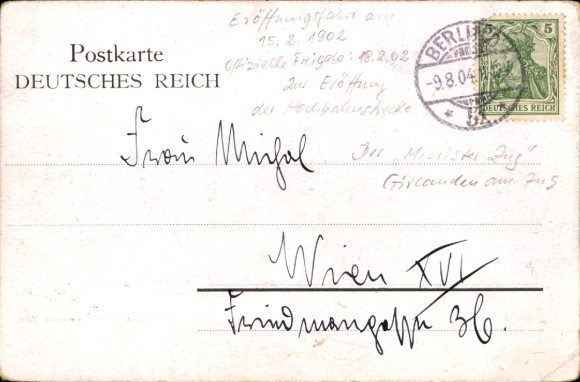 Eröffnungsfahrt am
15. 2. 1902
offizielle Freigabe: 18.2.02
Zur Eröffnung
der Hochbahnstrecke
Postkarte
DEUTSCHES REICH
BERLIN
-9.8.04
5
DEUTSCHES REICH
Frau Michal
Der „Minister-Zug"
Girlanden am Zug
Wien XVI
Friedmanngasse 36.